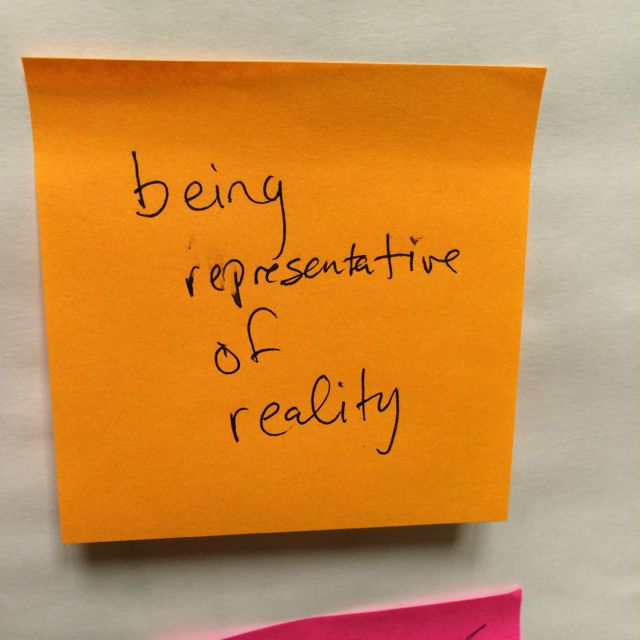 being
representative
of
reality